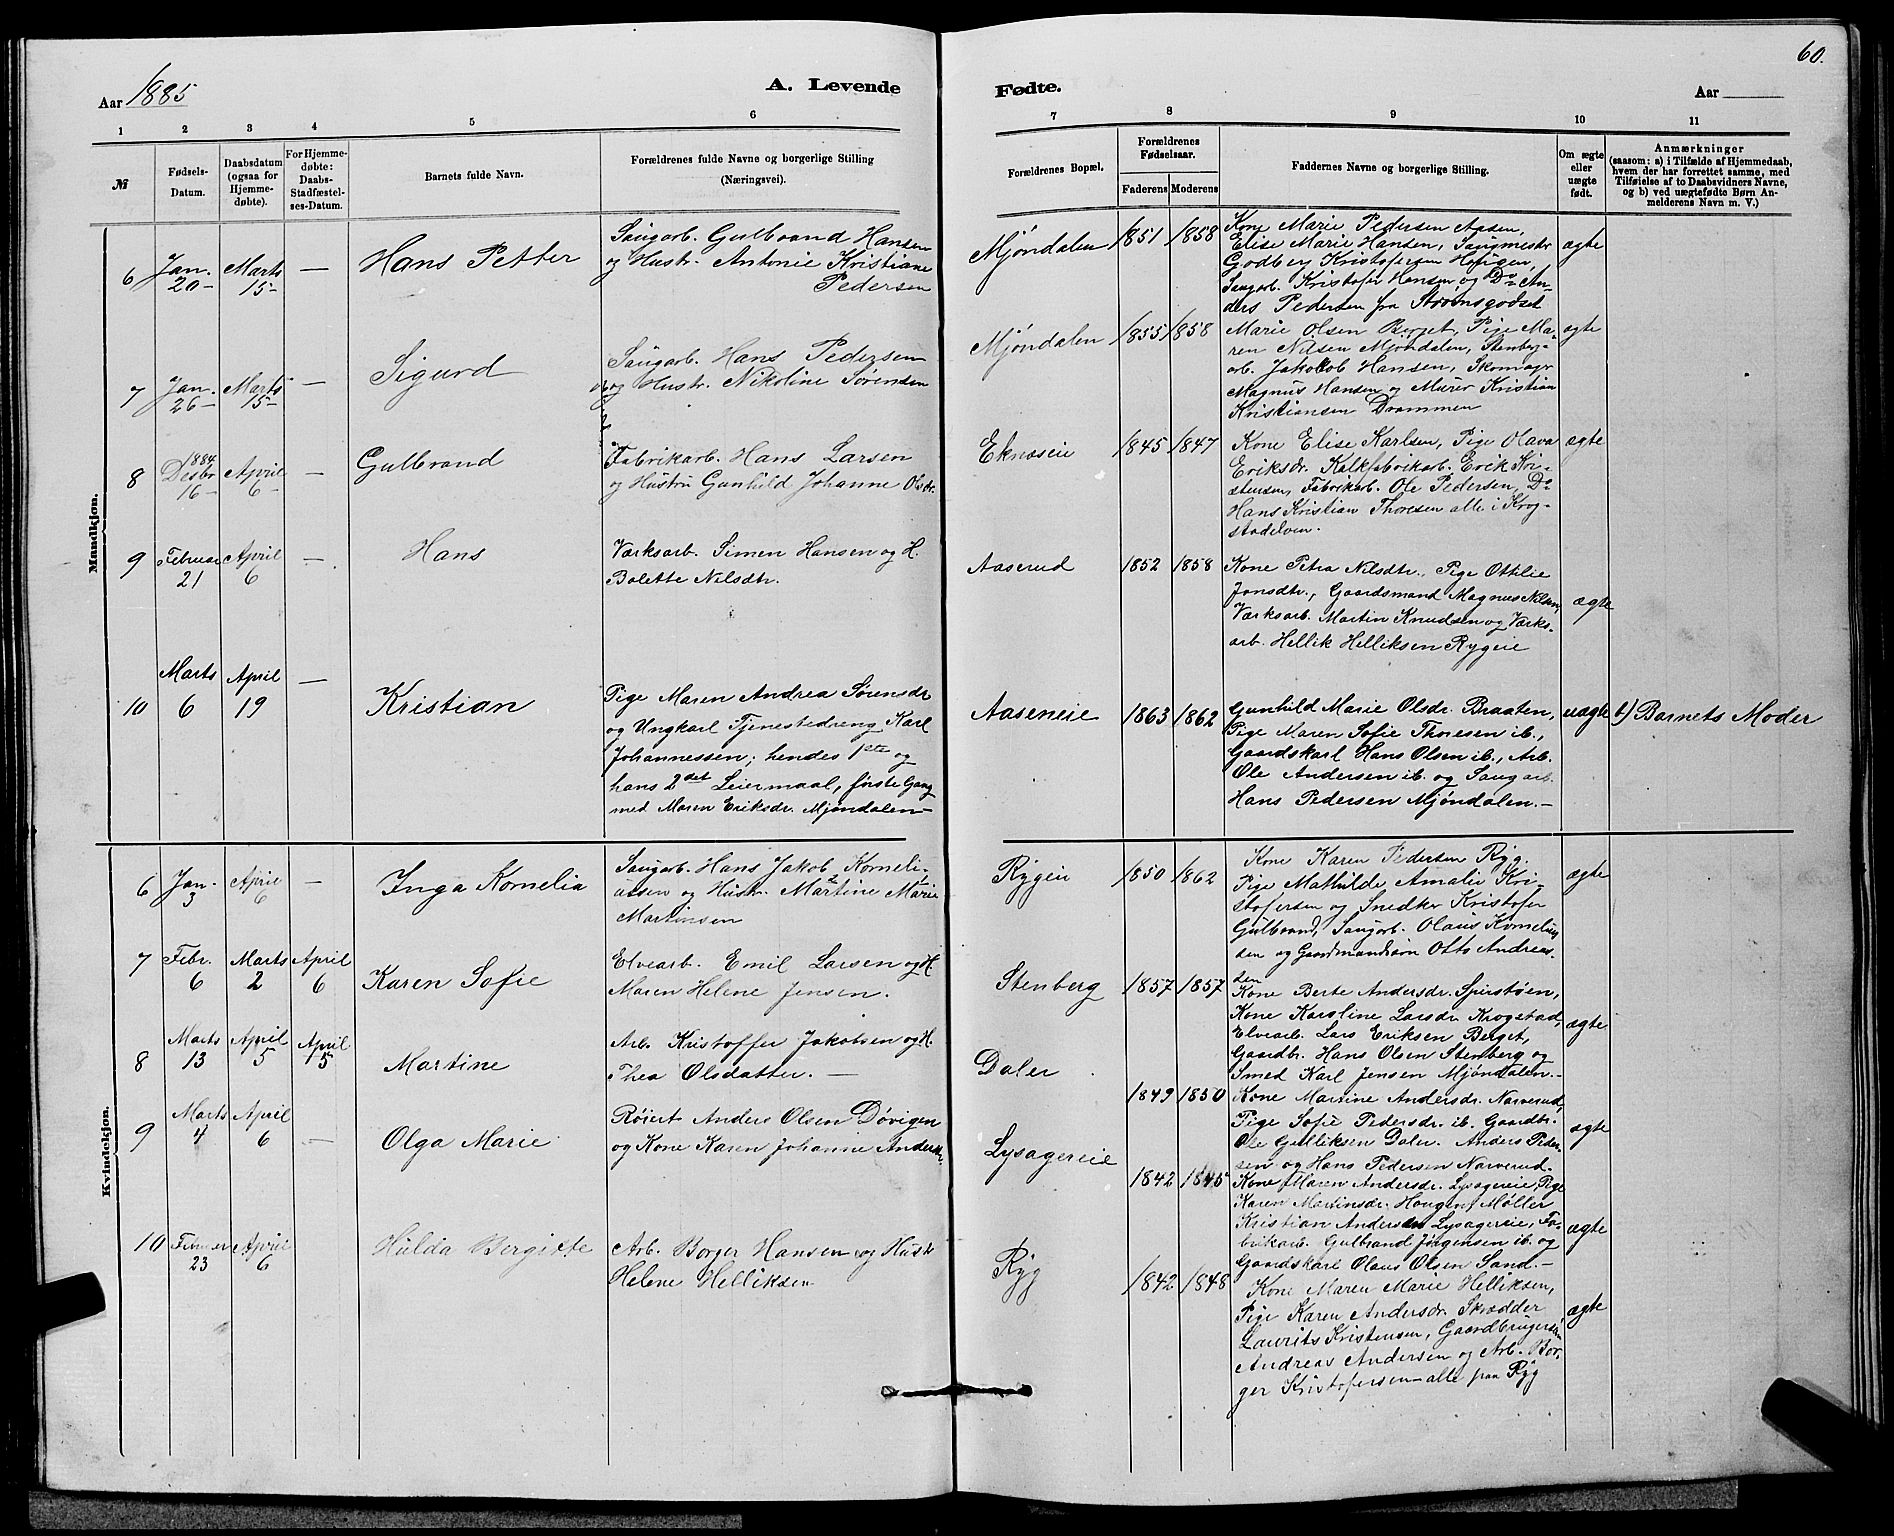 60.
Aar 1885
A. Levende
Fødte.
Aar
1 2 3 4 5 6
7 8 9 10 11
№
Fødsels-
Datum.
Daabsdatum
(ogsaa for
Hjemme-
døbte).
For Hjemme-
døbte:
Daabs-
Stadfæstel-
ses-Datum.
Barnets fulde Navn.
Forældrenes fulde Navne og borgerlige Stilling
(Næringsvei).
Forældrenes Bopæl.
Forældrenes
Fødselsaar.
Faderens Moderens
Faddernes Navne og borgerlige Stilling.
Om ægte
eller
uægte
født.
Anmærkninger
(saasom: a) i Tilfælde af Hjemmedaab,
hvem der har forrettet samme, med
Tilføielse af to Daabsvidners Navne,
og b) ved uægtefødte Børn An-
melderens Navn m. V.)
Mandkjøn.
6 Jan. 20 – Marts 15 – — Hans Petter
Saugarb. Gulbrand Hansen
og Hustr. Antonie Kristiane
Pedersen
Mjøndalen 1851 1858
Kone Marie Pedersen Aasen,
Elise Marie Hansen, Saugmestr
Godberg Kristofersen Hougen,
Saugarb. Kristofer Hansen og Do An-
ders Pedersen fra Strømsgodset
ægte
7 Jan. 26 – Marts 15 – — Sigurd
Saugarb. Hans Pedersen
og Hustr. Nikoline Sørensen
Mjøndalen 1855 1858
Marie Olsen Berget, Pige Ma-
ren Nilsen Mjøndalen, Stenberg-
arb. Jakob Hansen, Skomagr
Magnus Hansen og Murer Kristian
Kristiansen Drammen
ægte
8 1884 Desbr 16 – April 6 – — Gulbrand
Fabrikarb. Hans Larsen
og Hustru Gunhild Johanne Olsdr.
Eknæseie 1845 1847
Kone Elise Karlsen, Pige Olava
Eriksdr. Kalkfabrikarb. Erik Kri-
stensen, Fabrikarb. Ole Pedersen, Do
Hans Kristian Thoresen alle i Krog-
stadelven.
ægte
9 Februar 21 April 6 — Hans
Værksarb. Simen Hansen og H.
Bolette Nilsdtr.
Aaserud 1852 1858
Kone Petra Nilsdtr., Pige Ottilie
Jonsdtr., Gaardsmand Magnus Nilsen,
Værksarb. Martin Knudsen og Værks-
arb. Hellik Helliksen Rygeie
ægte
10 Marts 6 April 19 — Kristian
Pige Maren Andrea Sørensdr
og Ungkarl Tjenestedreng Karl
Johannessen; hendes 1ste og
hans 2det Leiermaal, første Gang
med Maren Eriksdr. Mjøndalen –
Aaseneie 1863 1862
Gunhild Marie Olsdr. Braaten,
Pige Maren Sofie Thoresen ib.,
Gaardskarl Hans Olsen ib., Arb.
Ole Andersen ib. og Saugarb.
Hans Pedersen Mjøndalen. –
uægte b) Barnets Moder
Kvindekjøn.
6 Jan. 3 April 6 — Inga Kornelia
Saugarb. Hans Jakob Korneli-
ussen og Hustr. Martine Marie
Martinsen
Rygeie 1850 1862
Kone Karen Pedersen Ryg.
Pige Mathilde Amalie Kri-
stofersen og Snedker Kristofer
Gulbrand, Saugarb. Olaus Kornelius-
sen og Gaardmandsøn Otto Andreas-
sen
ægte
7 Febr. 6 Marts 2 April 6 Karen Sofie
Elvearb. Emil Larsen og H.
Maren Helene Jensen.
Stenberg 1857 1857
Kone Berte Andersdr. Spirstøen,
Kone Karoline Larsdr Krogstad,
Elvearb. Lars Eriksen Berget,
Gaardbr. Hans Olsen Stenberg og
Smed Karl Jensen Mjøndalen. –
ægte
8 Marts 13 April 5 April 15 Martine
Arb. Kristoffer Jakobsen og H.
Thea Olsdatter. –
Daler 1849 1850
Kone Martine Andersdr. Narverud,
Pige Sofie Pedersdr. ib. Gaardbr.
Ole Gulliksen Daler. Anders Peder-
sen og Hans Pedersen Narverud.
ægte
9 Marts 4 April 6 — Olga Marie
Røiert Anders Olsen Døvigen
og Kone Karen Johanne Andersdr.
Lysagereie 1842 1845
Kone Maren Andersdr. Lysagereie, Pige
Karen Martinsdr. Hougen, Møller
Kristian Andersen Lysagereie, Fa-
brikarb. Gulbrand Jørgensen ib. og
Gaardskarl Olaus Olsen Sand. –
ægte
10 Februar 23 April 6 Hulda Bergitte
Arb. Borger Hansen og Hustr
Helene Helliksen
Ryg 1842 1848
Kone Maren Marie Helliksen,
Pige Karen Andersdr. Skrædder
Laurits Kristensen, Gaardbrugersøn
Andreas Andersen og Arb. Bor-
ger Kristofersen – alle paa Ryg
ægte